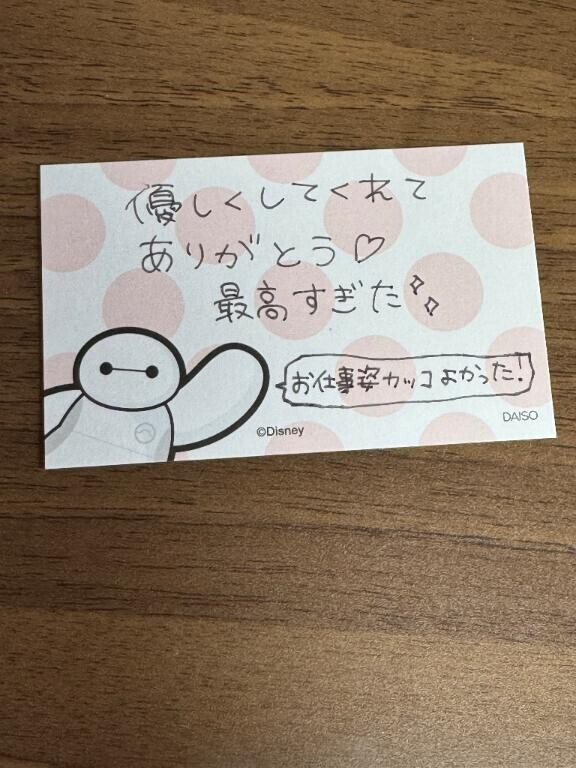 優しくしてくれて
ありがとう♡
最高すぎた✧✧
お仕事姿カッコよかった!
©Disney
DAISO